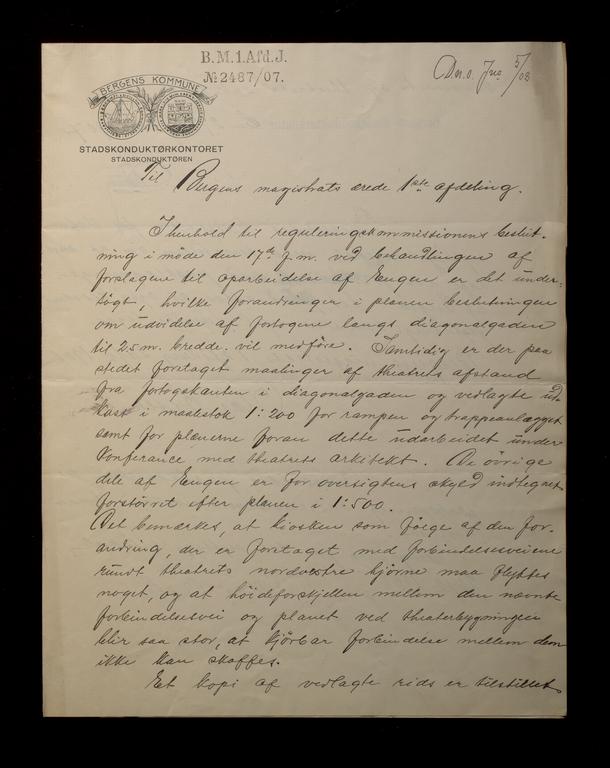 B.M.1.Afd.J.
№2487/07.
5/08
BERGENS KOMMUNE
STADSKONDUKTØRKONTORET
STADSKONDUKTØREN
Til Bergens magistrats ærede 1ste afdeling.
I henhold til reguleringskommissionens beslut-
ning i møde den 17de f.m. ved behandlingen af
forslagene til oparbeidelse af Engen er det under-
søgt, hvilke forandringer i planen beslutningen
om udvidelse af fortogene langs diagonalgaden
til 2.5 m. bredde vil medføre. Samtidig er der paa
stedet foretaget maalinger af theatrets afstand
fra fortogskanten i diagonalgaden og vedlagte ud-
kast i maalestok 1:200 for rampen og trappeanlægget
samt for plænerne foran dette udarbeidet under
konferance med theatrets arkitekt. De övrige
dele af Engen er for oversigtens skyld indtegnet
forstørret efter planen i 1:500.
Det bemærkes, at kiosken som følge af den for-
andring, der er foretaget med forbindelsesveiene
rundt theatrets nordvestre hjörne maa flyttes
noget, og at höideforskjellen mellem den nævnte
forbindelsesvei og planet ved theaterbygningen
blir saa stor, at kjörbar forbindelse mellem dem
ikke kan skaffes.
Et kopi af vedlagte rids er tilstillet